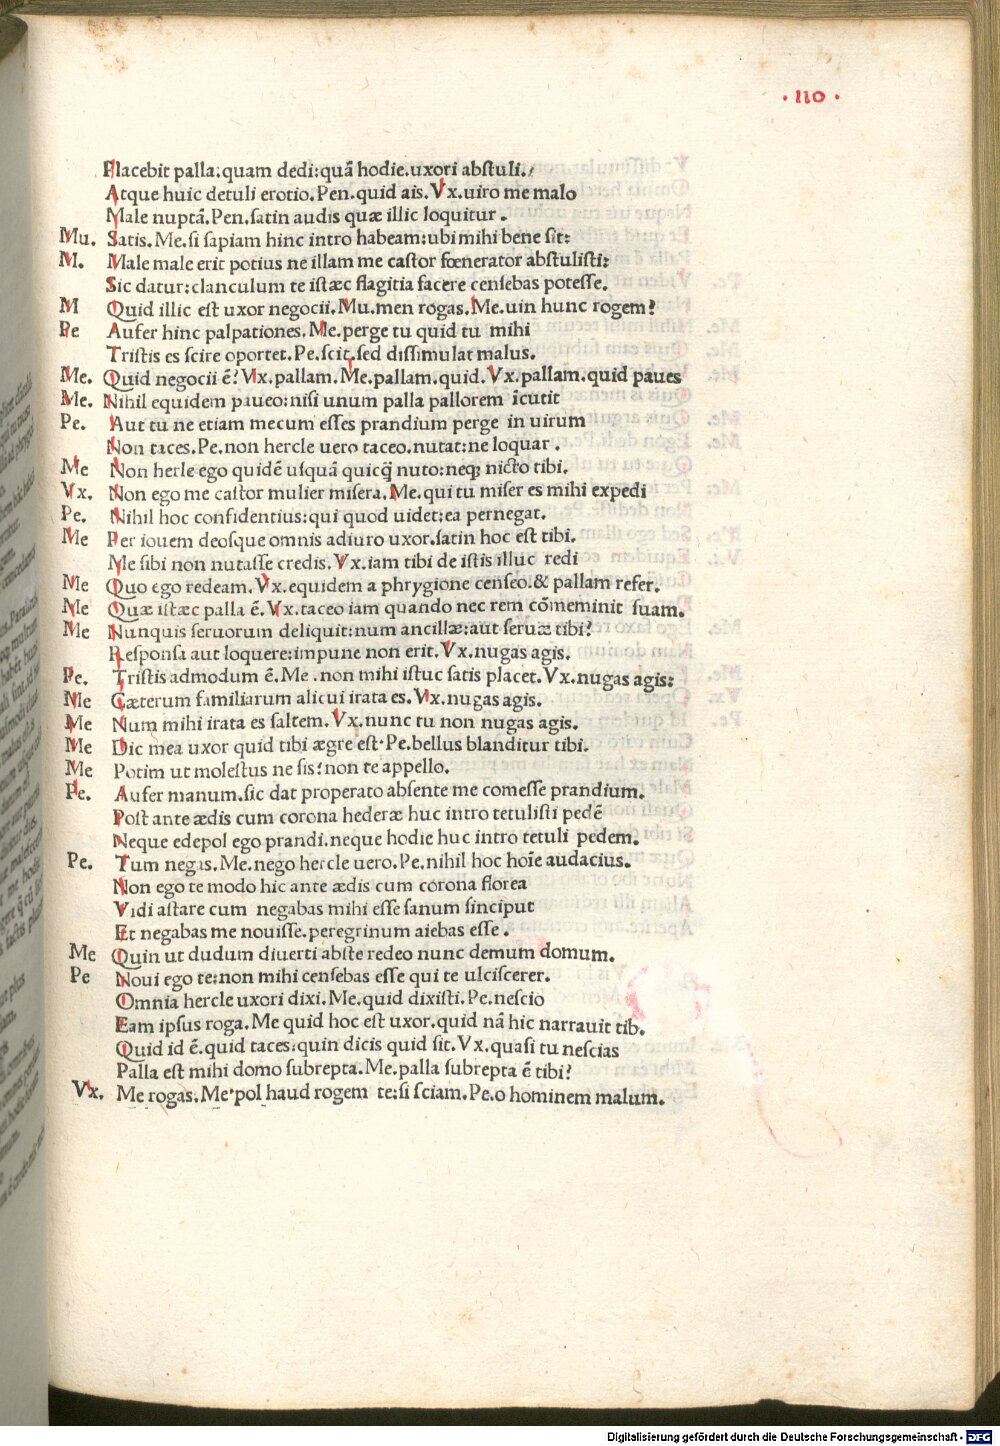 · 110 ·
Placebit palla.quam dedi:quā hodie.uxori abſtuli.
Atque huic detuli erotio.Pen.quid ais.Vx.uiro me malo
Male nuptā.Pen.ſatin audis quæ illic loquitur.
Mu. Satis.Me.ſi ſapiam hinc intro habeam:ubi mihi bene ſit:
M. Male male erit potius ne illam me caſtor fœnerator abſtuliſti:
Sic datur:clanculum te iſtæc flagitia facere cenſebas poteſſe.
M Quid illic eſt uxor negocii.Mu.men rogas.Me.uin hunc rogem?
Pe Aufer hinc palpationes.Me.perge tu quid tu mihi
Triſtis es ſcire oportet.Pe.ſcit.ſed diſſimulat malus.
Me. Quid negocii ē?Vx.pallam.Me.pallam.quid.Vx.pallam.quid paues
Me. Nihil equidem paueo:niſi unum palla pallorem īcutit
Pe. Aut tu ne etiam mecum eſſes prandium perge in uirum
Non taces.Pe.non hercle uero taceo.nutat:ne loquar.
Me Non herle ego quidē uſquā quicq̄ nuto:neq; nicto tibi.
Vx. Non ego me caſtor mulier miſera.Me.qui tu miſer es mihi expedi
Pe. Nihil hoc confidentius:qui quod uidet:ea pernegat.
Me Per iouem deoſque omnis adiuro uxor.ſatin hoc eſt tibi.
Me ſibi non nutaſſe credis.Vx.iam tibi de iſtis illuc redi
Me Quo ego redeam.Vx.equidem a phrygione cenſeo.& pallam refer.
Me Quæ iſtæc palla ē.Vx.taceo iam quando nec rem cōmeminit ſuam.
Me Nunquis ſeruorum deliquit:num ancillæ:aut ſeruæ tibi?
Reſponſa aut loquere:impune non erit.Vx.nugas agis.
Pe. Triſtis admodum ē.Me.non mihi iſtuc ſatis placet.Vx.nugas agis:
Me Cæterum familiarum alicui irata es.Vx.nugas agis.
Me Num mihi irata es ſaltem.Vx.nunc tu non nugas agis.
Me Dic mea uxor quid tibi ægre eſt·Pe.bellus blanditur tibi.
Me Potim ut moleſtus ne ſis:non te appello.
Pe. Aufer manum.ſic dat properato abſente me comeſſe prandium.
Poſt ante ædis cum corona hederæ huc intro tetuliſti pedē
Neque edepol ego prandi.neque hodie huc intro tetuli pedem.
Pe. Tum negas.Me.nego hercle uero.Pe.nihil hoc hoīe audacius.
Non ego te modo hic ante ædis cum corona florea
Vidi aſtare cum negabas mihi eſſe ſanum ſinciput
Et negabas me nouiſſe.peregrinum aiebas eſſe.
Me Quin ut dudum diuerti abſte redeo nunc demum domum.
Pe Noui ego te:non mihi cenſebas eſſe qui te ulciſcerer.
Omnia hercle uxori dixi.Me.quid dixiſti.Pe.neſcio
Eam ipſus roga.Me quid hoc eſt uxor.quid nā hic narrauit tib.
Quid id ē.quid taces:quin dicis quid ſit.Vx.quaſi tu neſcias
Palla eſt mihi domo ſubrepta.Me.palla ſubrepta ē tibi?
Vx. Me rogas.Me·pol haud rogem te:ſi ſciam.Pe.o hominem malum.
Digitalisierung gefördert durch die Deutsche Forschungsgemeinschaft - DFG